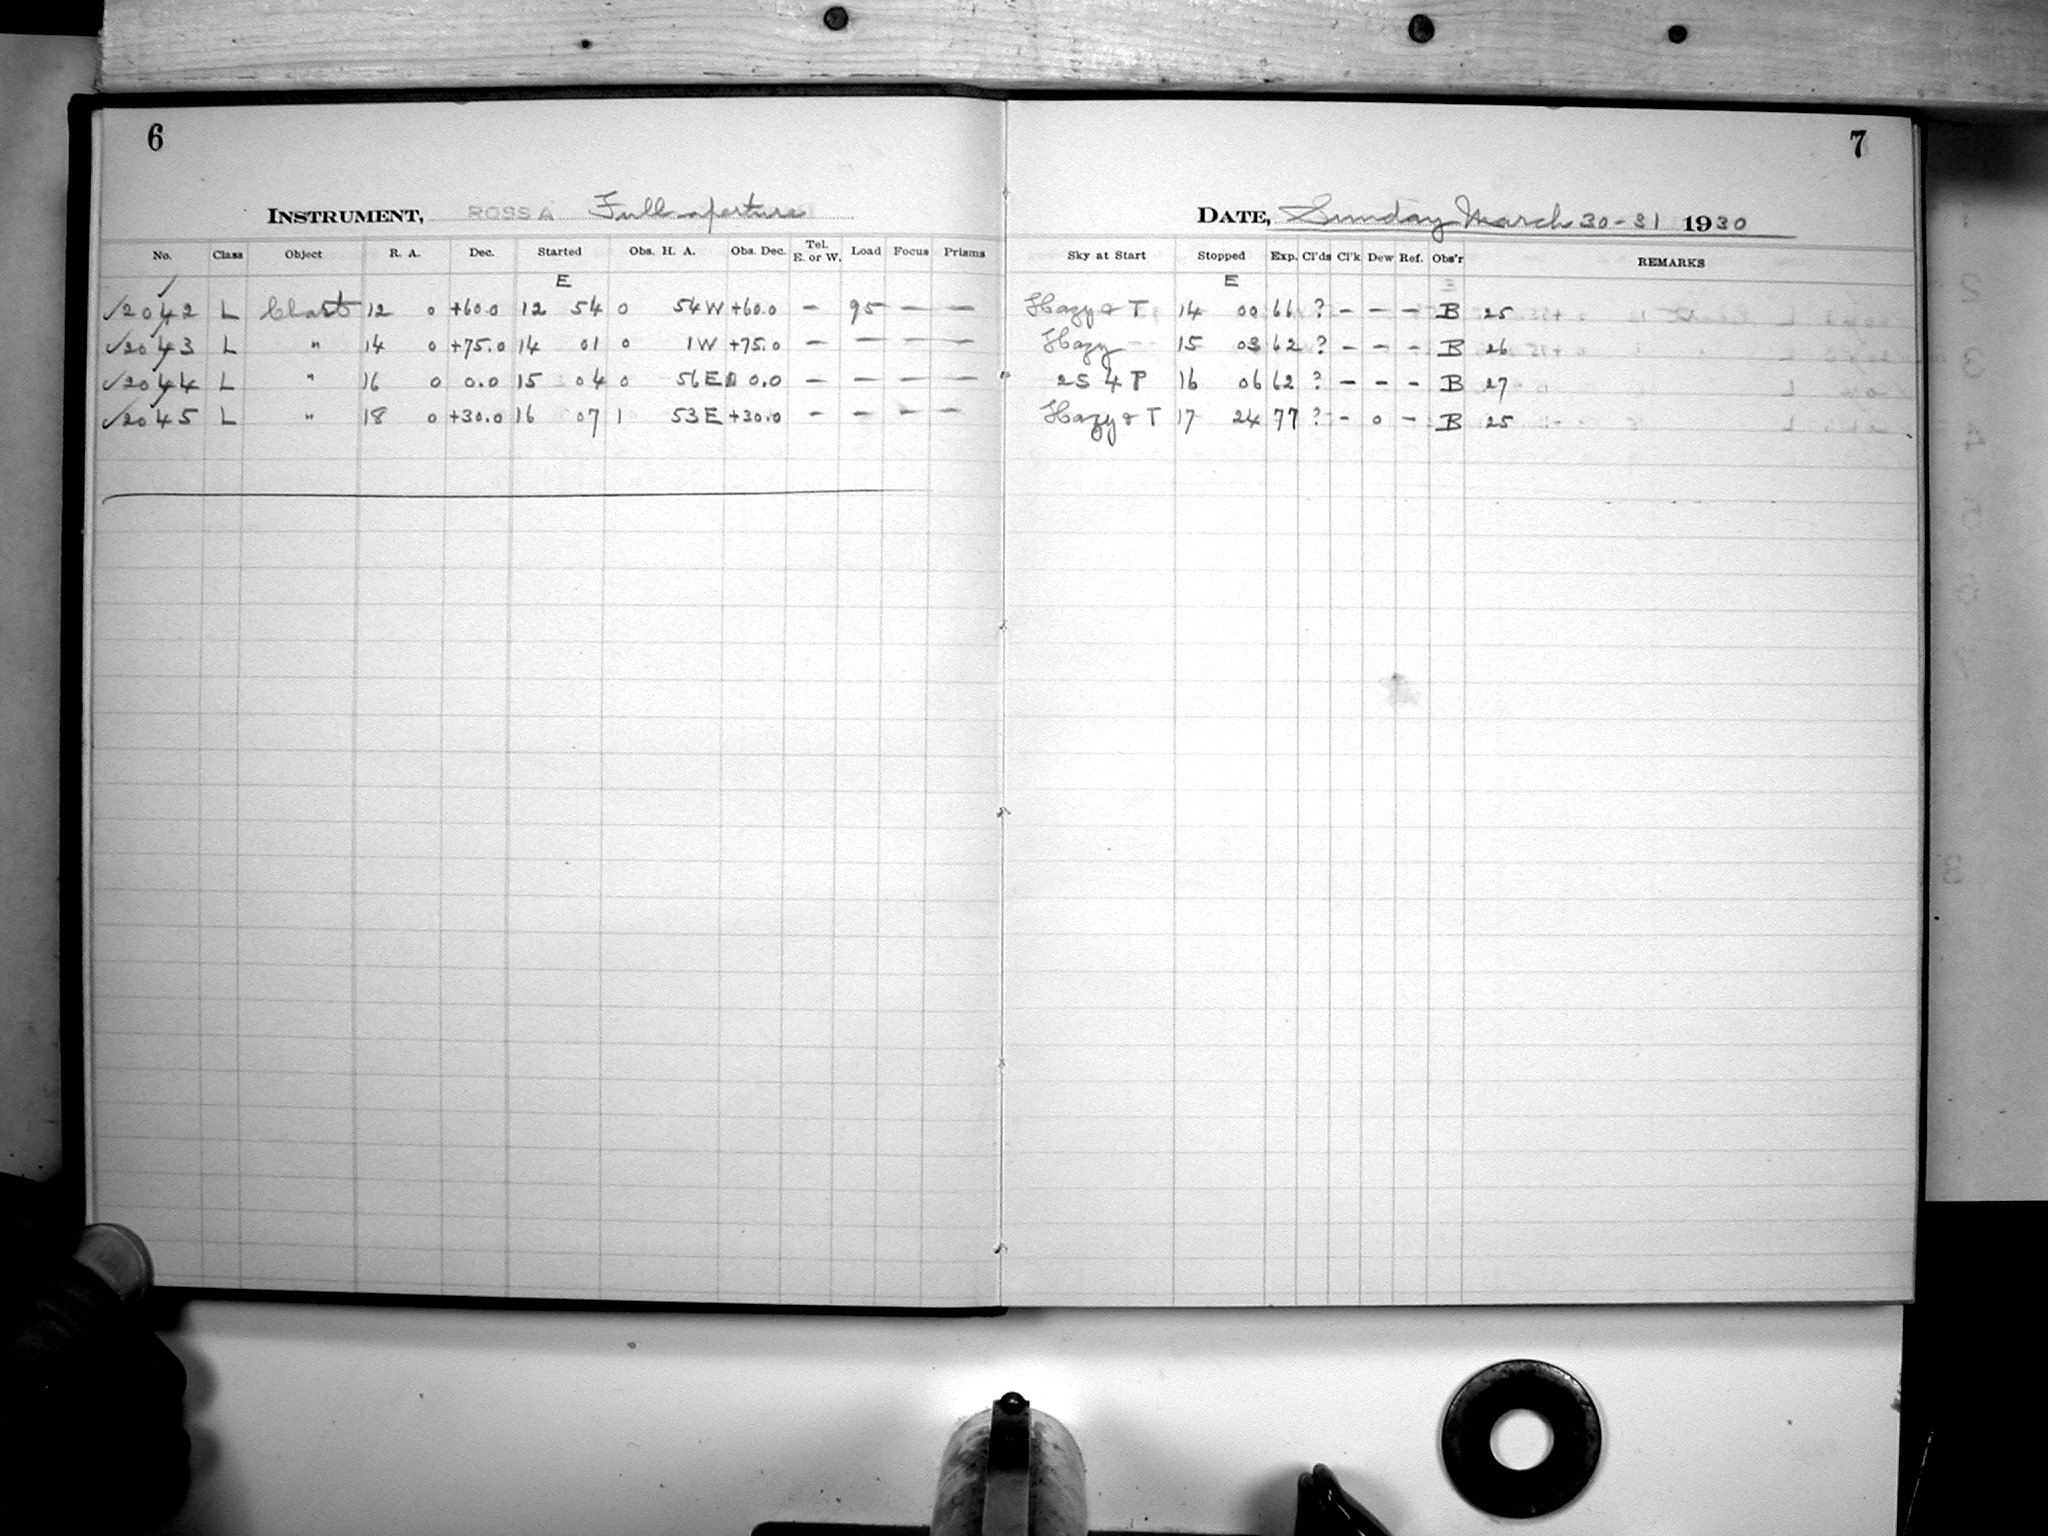 6
INSTRUMENT, ROSS A Full aperture
No. Class Object R. A. Dec. Started Obs. H. A. Obs. Dec. Tel. E. or W. Load Focus Prisms
E
✓2042 L Chart 12 0 +60.0 12 54 0 54 W +60.0 – 95 – –
✓2043 L " 14 0 +75.0 14 01 0 1 W +75.0 – – – –
✓2044 L " 16 0 0.0 15 04 0 56 E 0.0 – – – –
✓2045 L " 18 0 +30.0 16 07 1 53 E +30.0 – – – –
7
DATE, Sunday March 30-31 1930
Sky at Start Stopped Exp. Cl'ds Cl'k Dew Ref. Obs'r REMARKS
E
Hazy & T 14 00 66 ? – – – B 25
Hazy 15 03 62 ? – – – B 26
2S 4 P 16 06 62 ? – – – B 27
Hazy & T 17 24 77 ? – 0 – B 25